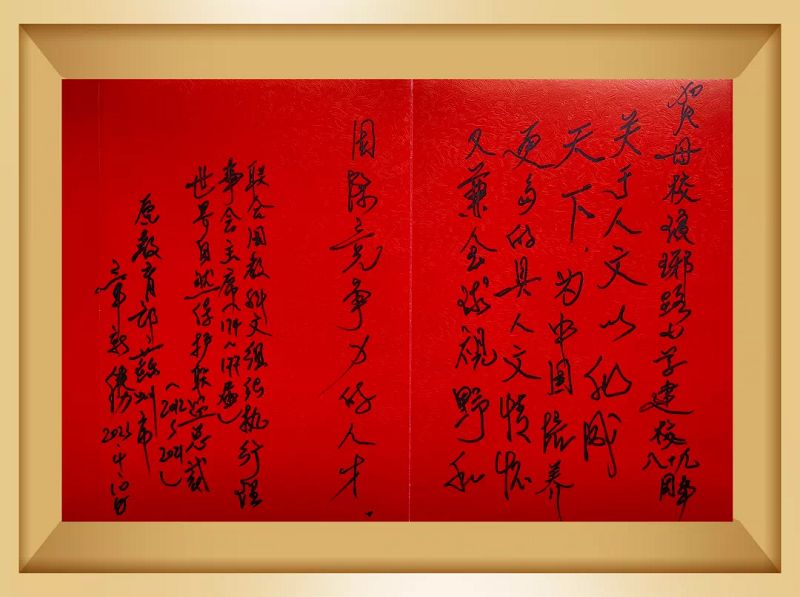 贺母校琅琊路小学建校
八十九周年
关乎人文以化成
天下.为中国培养
更多的具人文情怀
又兼全球视野和
国际竞争力的人才.
联合国教科文组织执行理
事会主席(174~177届)
世界自然保护联盟总裁
(2012~2021)
原教育部 苏州市
章新胜 2023.4.